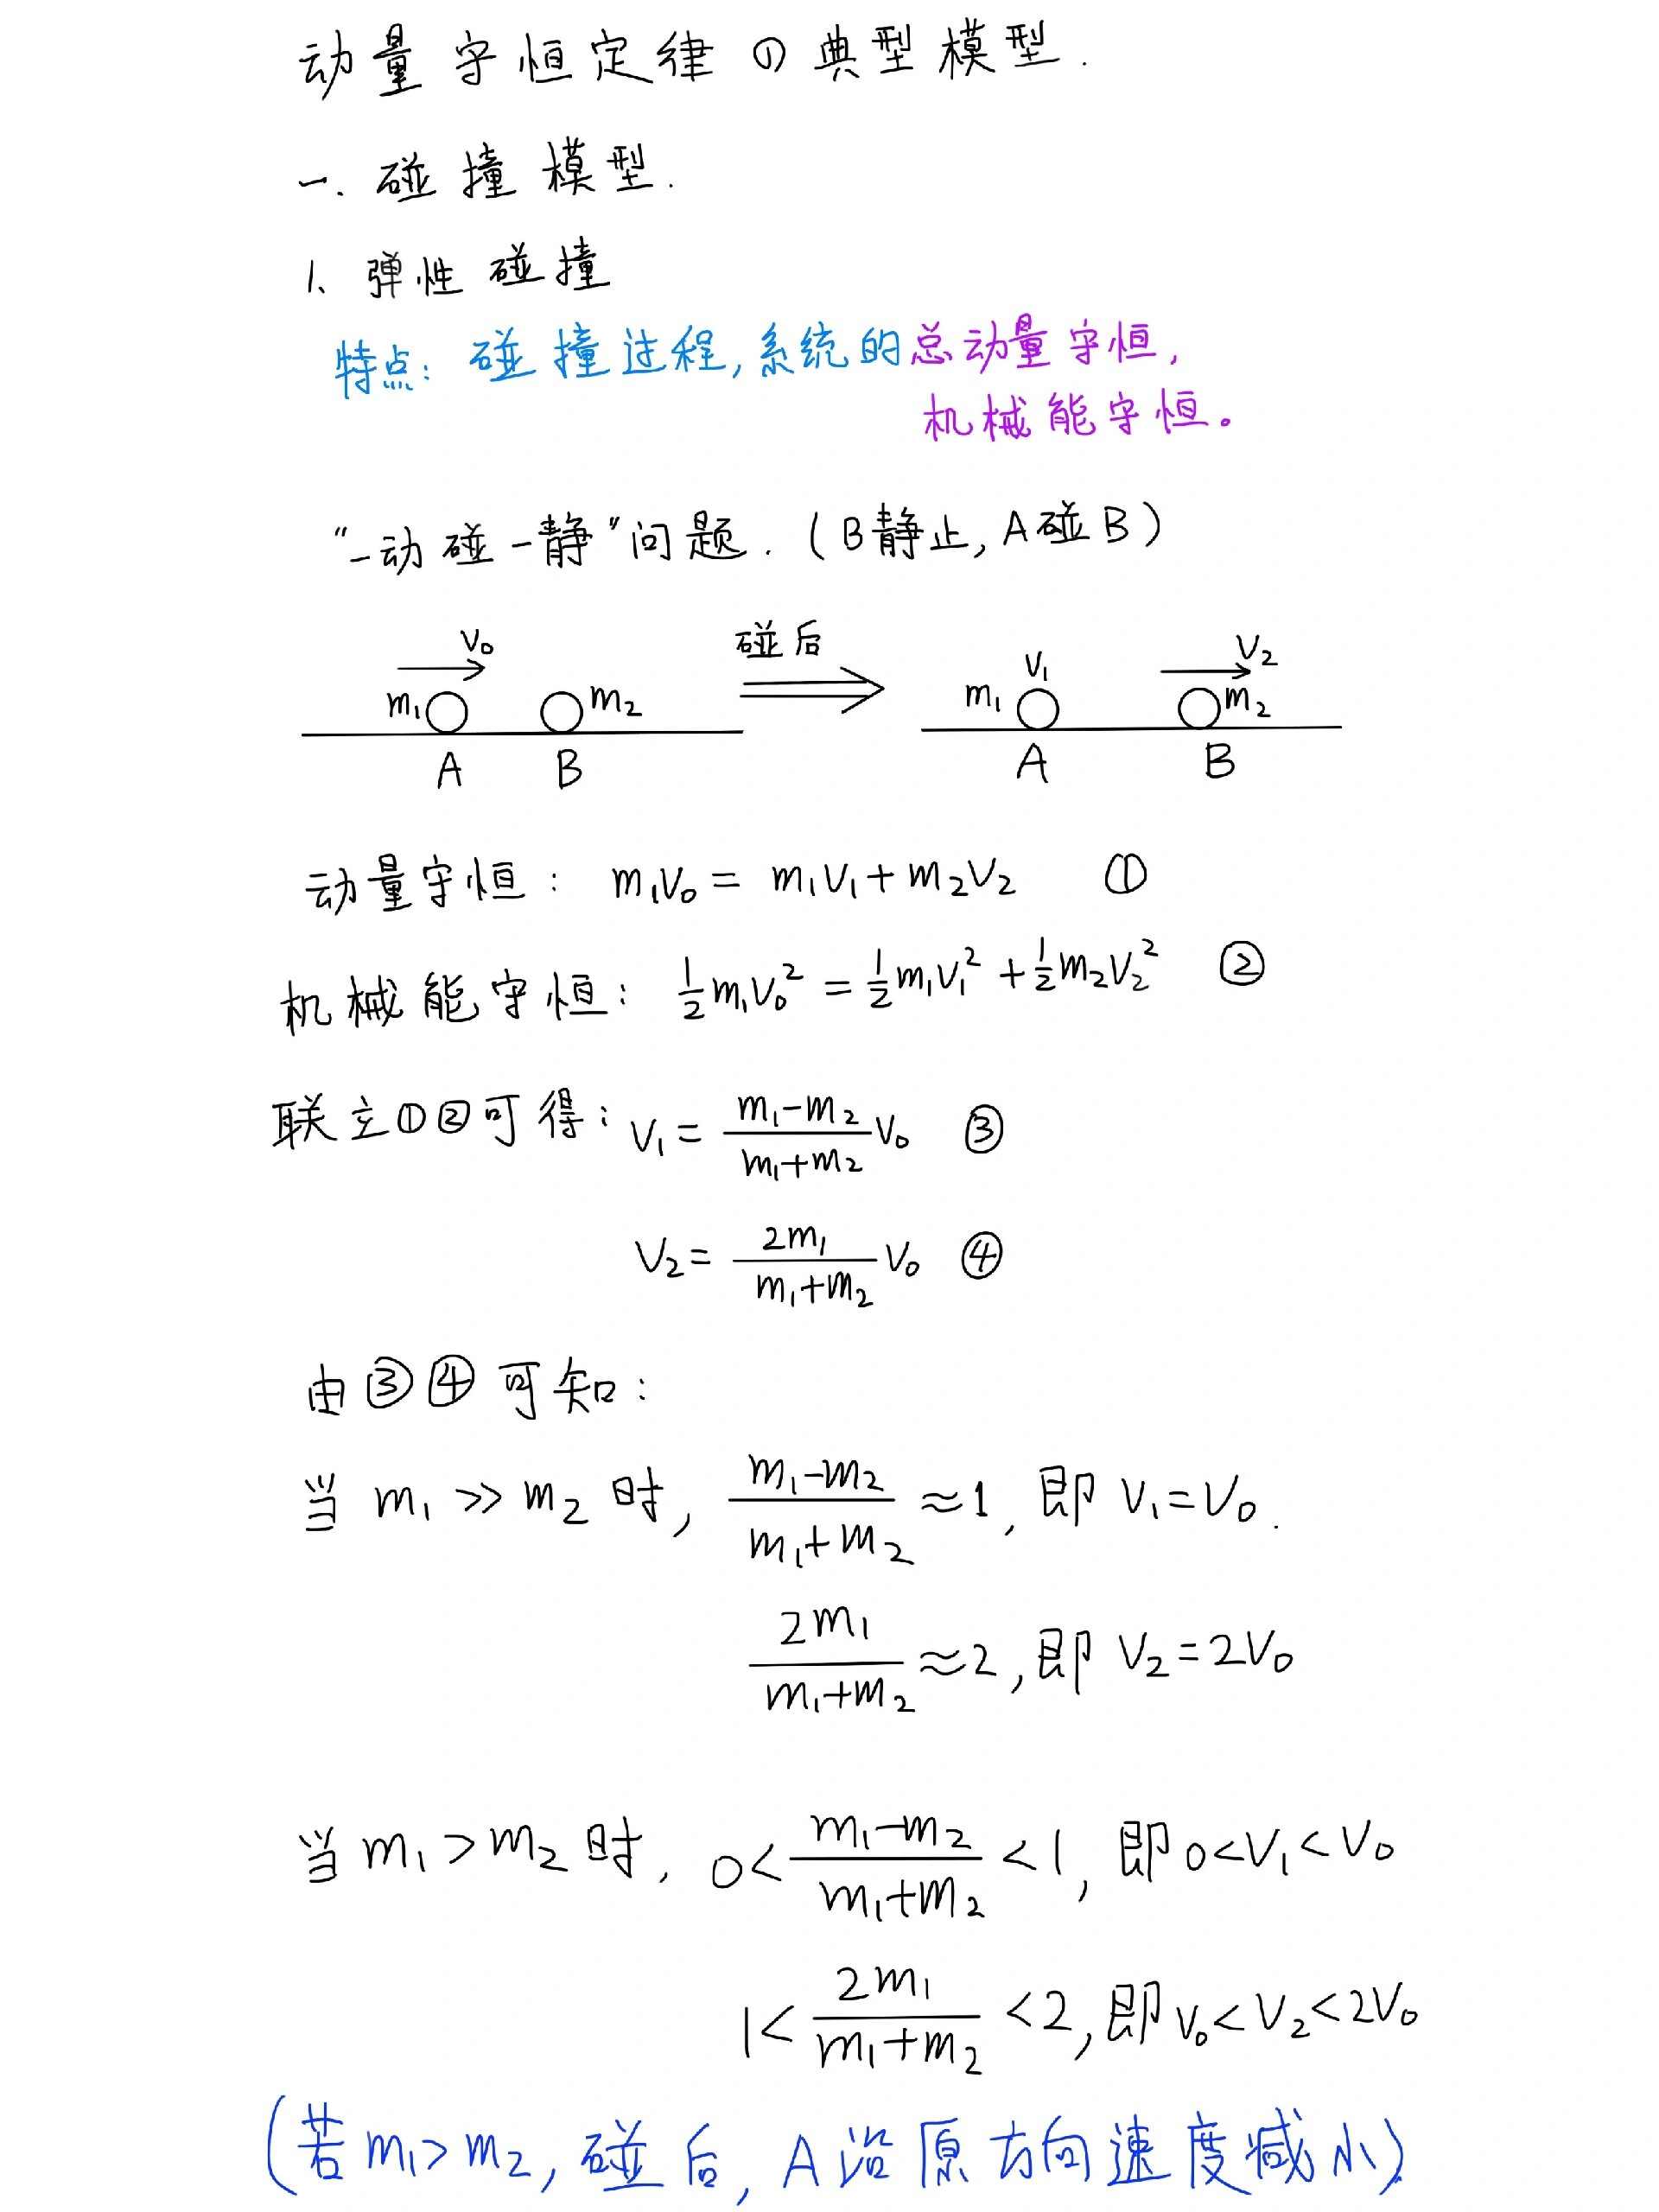 动量守恒定律の典型模型.
一. 碰撞模型.
1、弹性碰撞
特点: 碰撞过程, 系统的总动量守恒,
机械能守恒。
"一动碰一静"问题. (B静止, A碰B)
V₀ 碰后 V₁ V₂
m₁ m₂ m₁ m₂
A B A B
动量守恒: m₁V₀ = m₁V₁ + m₂V₂ ①
机械能守恒: ½m₁V₀² = ½m₁V₁² + ½m₂V₂² ②
联立①②可得: V₁ = (m₁-m₂)/(m₁+m₂) V₀ ③
V₂ = 2m₁/(m₁+m₂) V₀ ④
由③④可知:
当 m₁ >> m₂ 时, (m₁-m₂)/(m₁+m₂) ≈ 1, 即 V₁ = V₀.
2m₁/(m₁+m₂) ≈ 2, 即 V₂ = 2V₀
当 m₁ > m₂ 时, 0 < (m₁-m₂)/(m₁+m₂) < 1, 即 0 < V₁ < V₀
1 < 2m₁/(m₁+m₂) < 2, 即 V₀ < V₂ < 2V₀
(若 m₁ > m₂, 碰后, A沿原方向速度减小)